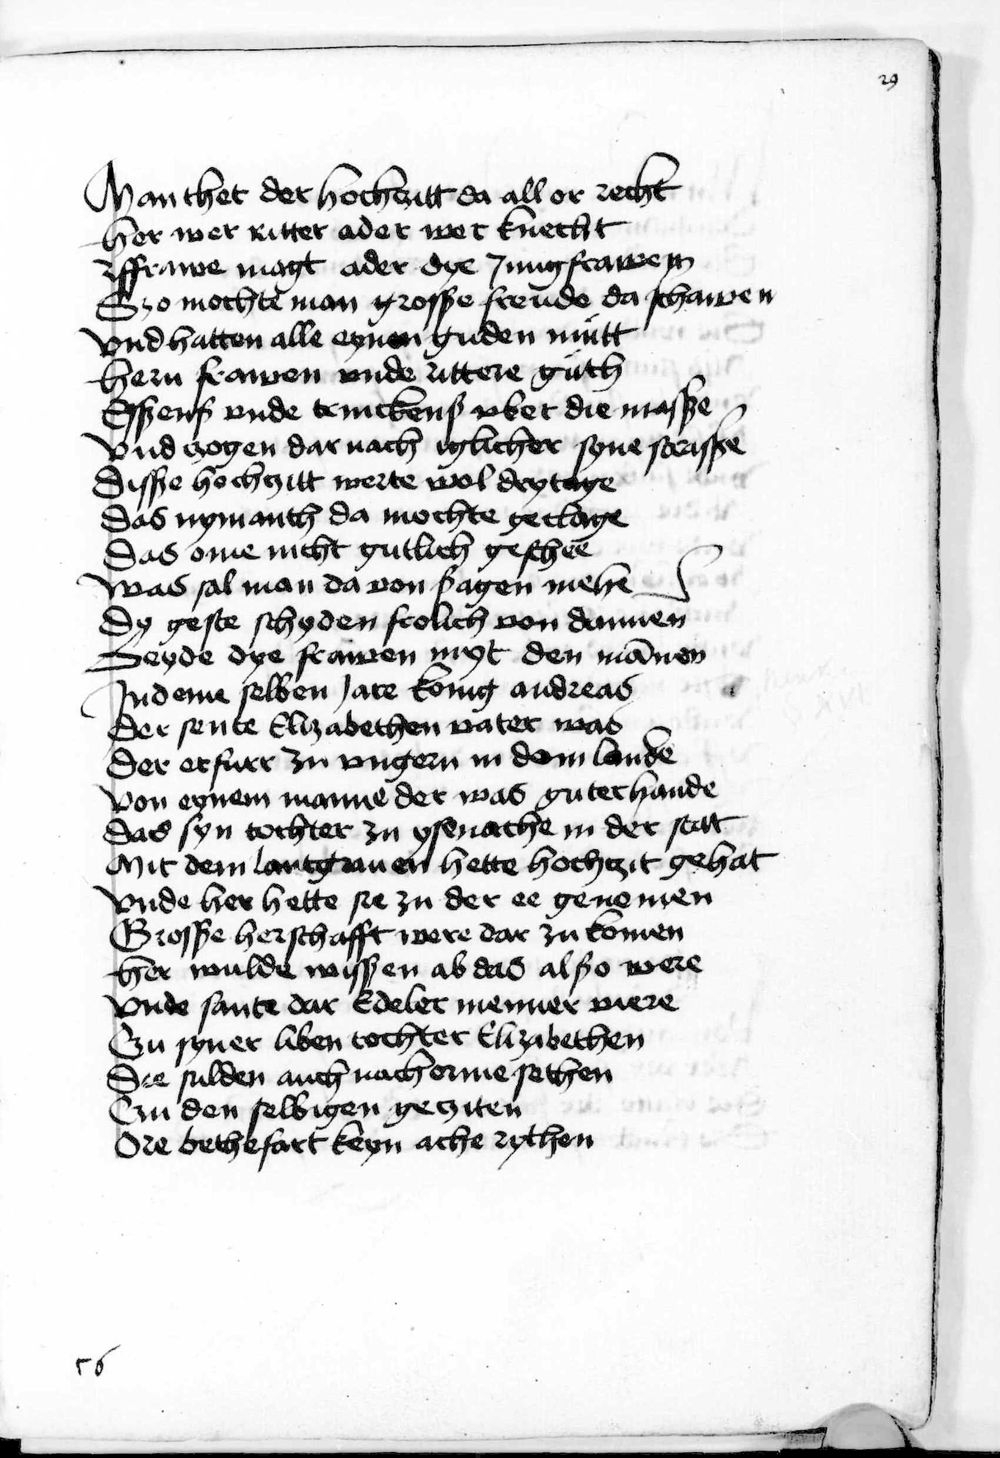 29
Man thet der hochtzitt da all or recht
her wer ritter ader wer knecht
Iffrawe magt ader dye Jungfrawen
Szo mochte man grosße freude da schawen
vnd hatten alle eynen guden mutt
hern frawen vnde rittere guth
Esßenß vnde trinckenß vber die masße
Vnd zogen dar nach iglicher syne strasße
Disße hochtzitt werte wol drytage
Das nymanth da mochte geclage
Das ome nicht gutlich geschee
Was sal man da von ßagen mehe
Dy geste schyden frolich von dannen
Beyde dye frawen myt den mānen
In deme selben Jare konig andreas
Der sente Elizabethen vater was
Der erfurr zu vngern in dem lande
von eynem manne der was guterhande
das syn tochter zu ysenache in der statt
Mit dem lantgrauen hette hochtzit gehat
Vnde her hette sie zu der ee genomen
Grosße herschafft were dar zu komen
her wulde wisßen ab das alßo were
Vnde sante dar Edeler menner viere
Czu syner liben tochter Elizabethen
Die sulden auch nach orme bethen
Czu den selbigen getziten
Ore bethefart keyn ache rythen
56